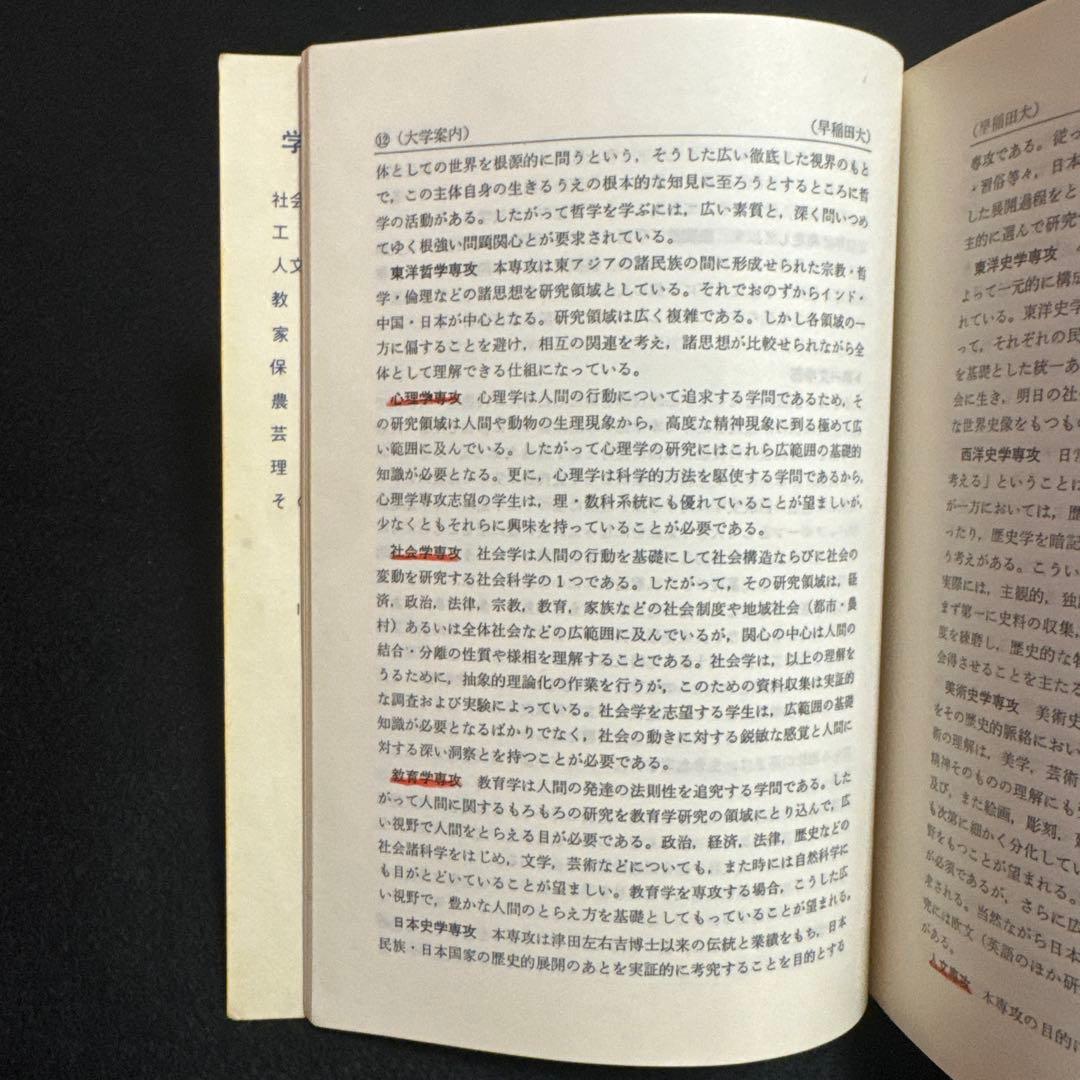 学
社会
工
人文
教
家
保
農
芸
理
そ
⑫（大学案内）
（早稲田大）
体としての世界を根源的に問うという，そうした広い徹底した視界のもと
で，この主体自身の生きるうえの根本的な知見に至ろうとするところに哲
学の活動がある。したがって哲学を学ぶには，広い素質と，深く問いつめ
てゆく根強い問題関心とが要求されている。
東洋哲学専攻　本専攻は東アジアの諸民族の間に形成せられた宗教・哲
学・倫理などの諸思想を研究領域としている。それでおのずからインド・
中国・日本が中心となる。研究領域は広く複雑である。しかし各領域の一
方に偏することを避け，相互の関連を考え，諸思想が比較せられながら全
体として理解できる仕組になっている。
心理学専攻　心理学は人間の行動について追求する学問であるため，そ
の研究領域は人間や動物の生理現象から，高度な精神現象に到る極めて広
い範囲に及んでいる。したがって心理学の研究にはこれら広範囲の基礎的
知識が必要となる。更に，心理学は科学的方法を駆使する学問であるから，
心理学専攻志望の学生は，理・数科系統にも優れていることが望ましいが，
少なくともそれらに興味を持っていることが必要である。
社会学専攻　社会学は人間の行動を基礎にして社会構造ならびに社会の
変動を研究する社会科学の１つである。したがって，その研究領域は，経
済，政治，法律，宗教，教育，家族などの社会制度や地域社会（都市・農
村）あるいは全体社会などの広範囲に及んでいるが，関心の中心は人間の
結合・分離の性質や様相を理解することである。社会学は，以上の理解を
うるために，抽象的理論化の作業を行うが，このための資料収集は実証的
な調査および実験によっている。社会学を志望する学生は，広範囲の基礎
知識が必要となるばかりでなく，社会の動きに対する鋭敏な感覚と人間に
対する深い洞察とを持つことが必要である。
教育学専攻　教育学は人間の発達の法則性を追究する学問である。した
がって人間に関するもろもろの研究を教育学研究の領域にとり込んで，広
い視野で人間をとらえる目が必要である。政治，経済，法律，歴史などの
社会諸科学をはじめ，文学，芸術などについても，また時には自然科学に
も目がとどいていることが望ましい。教育学を専攻する場合，こうした広
い視野で，豊かな人間のとらえ方を基礎としてもっていることが望まれる。
日本史学専攻　本専攻は津田左右吉博士以来の伝統と業績をもち，日本
民族・日本国家の歴史的展開のあとを実証的に考究することを目的とする
（早稲田大）
専攻である。従っ
・習俗等々，日本
した展開過程をと
主的に選んで研究
東洋史学専攻
よって一元的に構成
れている。東洋史学
って，それぞれの民
を基礎とした統一あ
会に生き，明日の社
な世界史像をもつもの
西洋史学専攻　日常
考える」ということは
が一方においては，歴
ったり，歴史学を暗記
り考えがある。こうい
実際には，主観的，独
まず第一に史料の収集，
度を練磨し，歴史的な物
会得させることを主たる
美術史学専攻　美術史
をその歴史的脈絡におい
術の理解は，美学，芸術
精神そのものの理解にも
及び，また絵画，彫刻，
も次第に細かく分化してい
野をもつことが望まれる。
が必須であるが，さらに広
求される。当然ながら日本
究には欧文（英語のほか研
がある。
人文専攻　本専攻の目的は